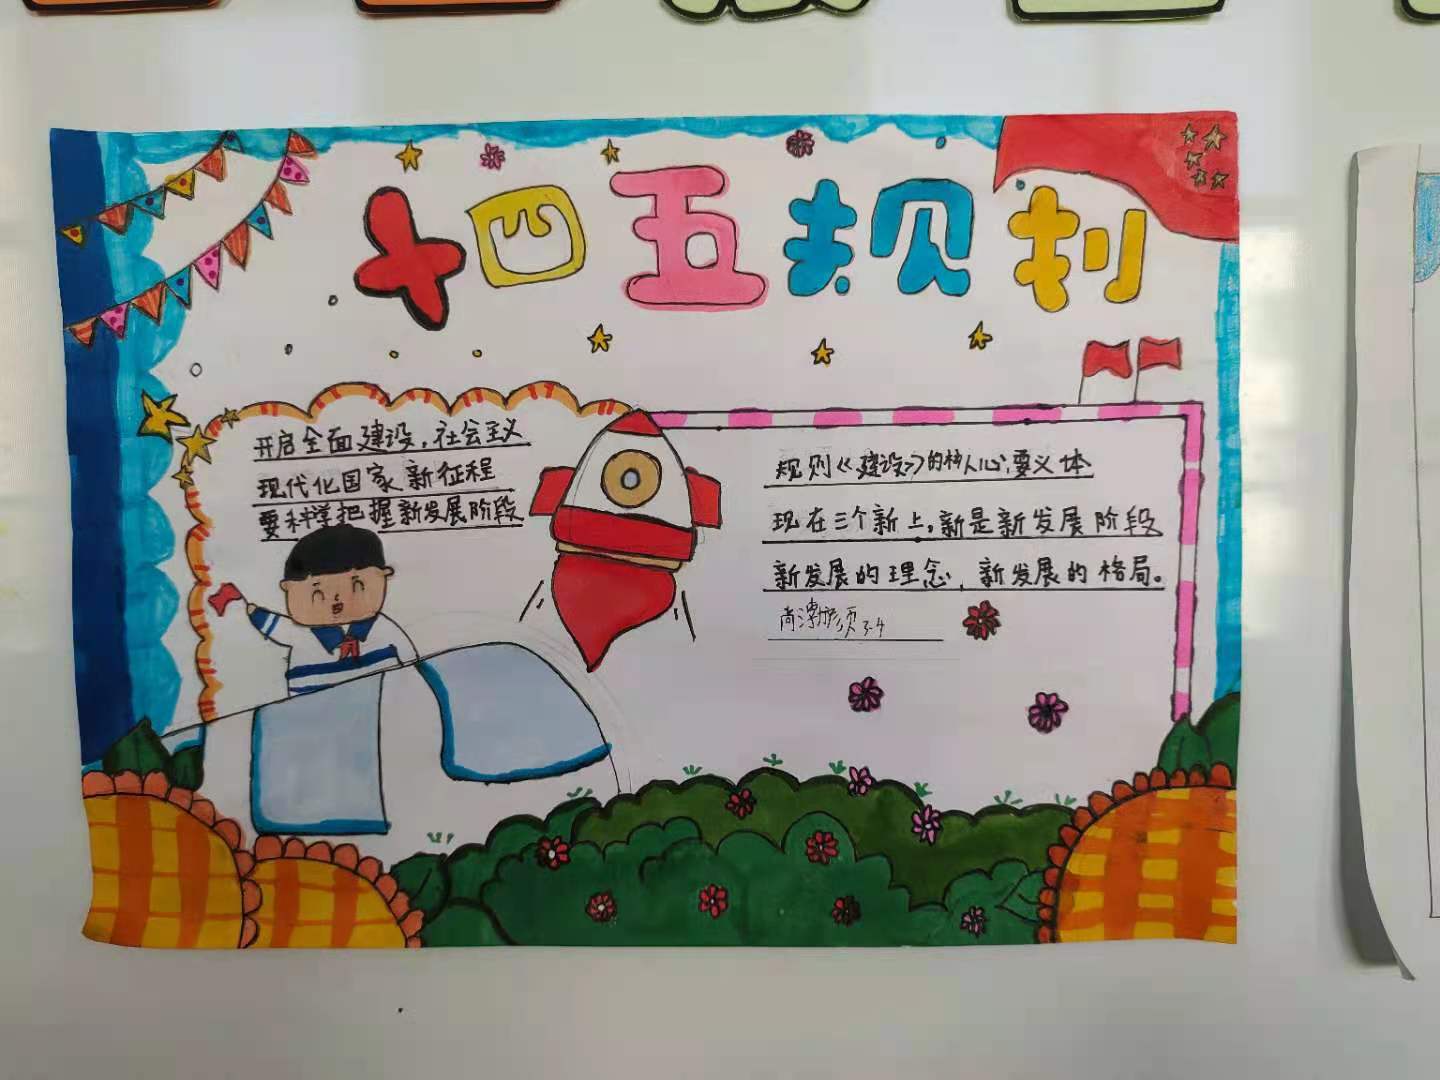 十四五规划
开启全面建设，社会主义
现代化国家新征程
要科学把握新发展阶段
规则《建设》的核心要义体
现在三个新上，新是新发展阶段
新发展的理念，新发展的格局。
3-4